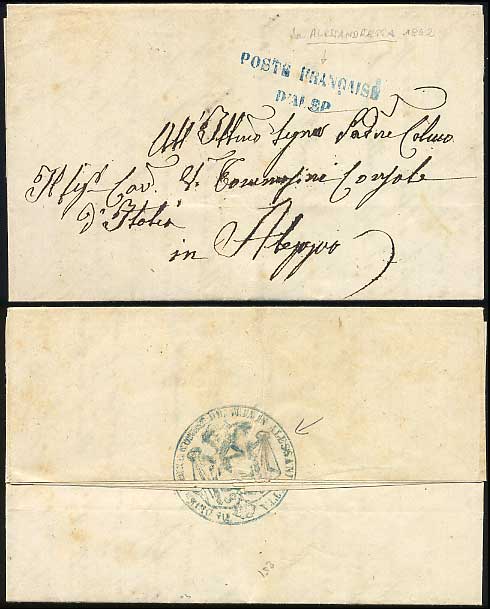 da ALESSANDRETTA 1862
POSTE FRANÇAISE
D'ALEP
All' Illmo Signor Padne Colmo
Il Sigr Cav. Tommasini Console
d'Italia
in Aleppo
ALESSANDRETTA